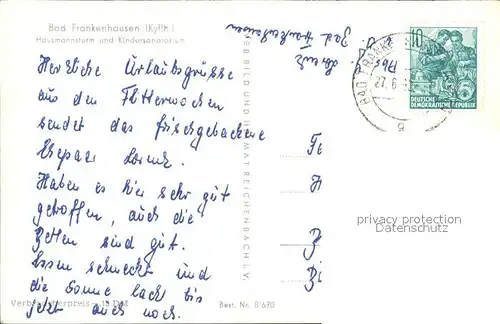 Bad Frankenhausen (Kyffh.)
Hausmannsturm und Kindersanatorium
Herzliche Urlaubsgrüsse
aus den Flitterwochen
sendet das frischgebackene
Ehepaar Lorenz.
Haben es hier sehr gut
getroffen, auch die
Betten sind gut.
Essen schmeckt und
die Sonne lacht bis
jetzt auch noch.
Verbraucherpreis - 15 DM
Best. Nr. B 690
BILD UND HEIMAT REICHENBACH I. V.
Lorenz
Bad Frankenhausen
BAD FRANKE
27. 6.
10
DEUTSCHE
DEMOKRATISCHE REPUBLIK
privacy protection
Datenschutz